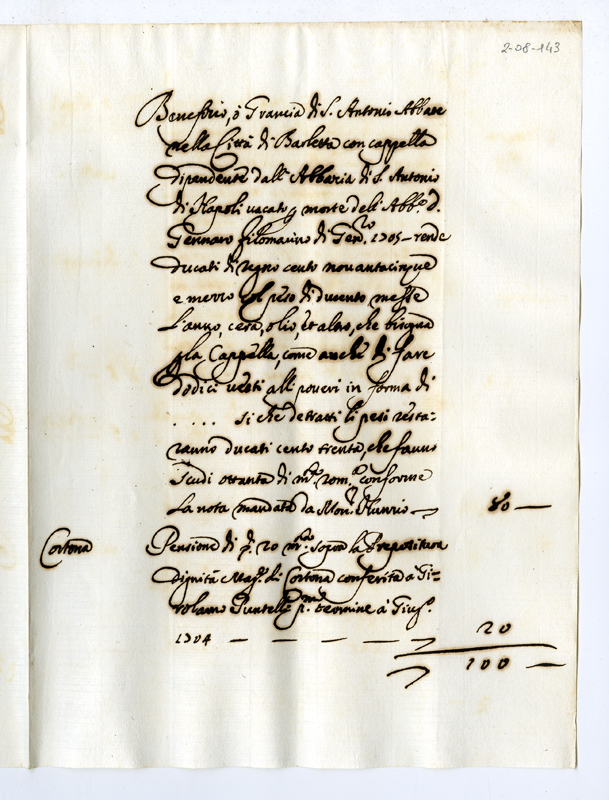 2-08-143
Beneficio, ò Grancia di S. Antonio Abbate
nella Città di Barletta con cappella
dipendente dall' Abbatia di S. Antonio
di Napoli vacato p morte dell' Abb.e D.
Gennaro Filomarino di Gen.ro 1705 - rende
ducati di regno cento novantacinque
e mezzo col peso di ducento messe
l'anno, cera, olio, et altro, che bisogna
p la Cappella, come anche di fare
dodici vesti alli poveri in forma di
. . . . si che detratti li pesi resta:
ranno ducati cento trenta, che fanno
scudi ottanta di m.ta rom.a conforme
la nota mandata da Mon.r Nunzio — 80 —
Cortona Pensione di 20 m.ta sopra la Prepositura
dignità Mag.e di Cortona conferita à Gi-
rolamo p.mo termine à Giug.o
1704 — — — — — 20
100 —